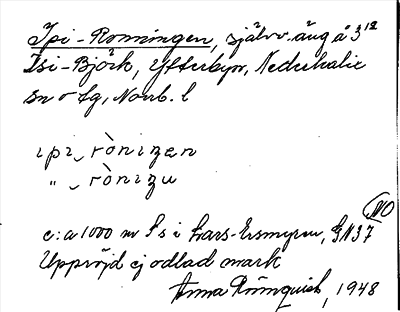 Ipi-Ronningen, självv. äng å 3 12
Isi-Björk, Ytterbyn, Nederkalix
sn o tg, Norrb. l
ipi rònizen
" rònizu
NO
c:a 1000 m S s i Lars-Ersmyren, GN37
Uppröjd ej odlad mark
Anna Rönnquist, 1948